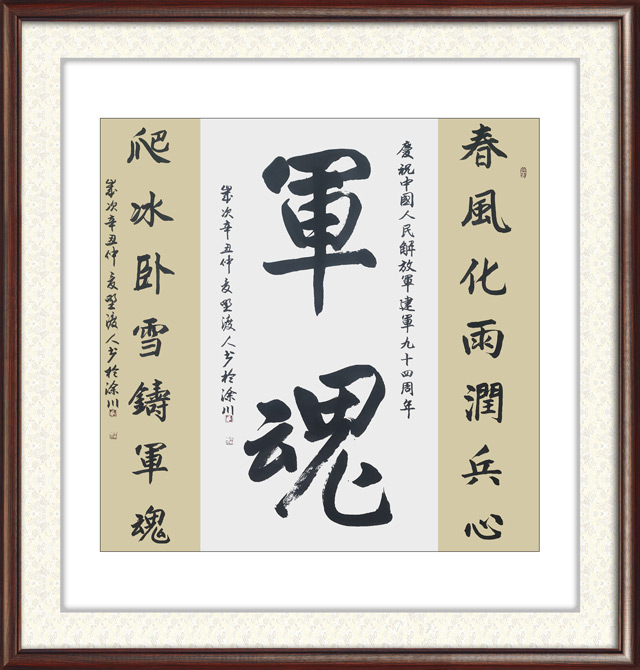 春風化雨潤兵心
慶祝中國人民解放軍建軍九十四周年
軍魂
歲次辛丑仲夏野渡人书於涂川
爬冰卧雪鑄軍魂
歲次辛丑仲夏野渡人书於涂川